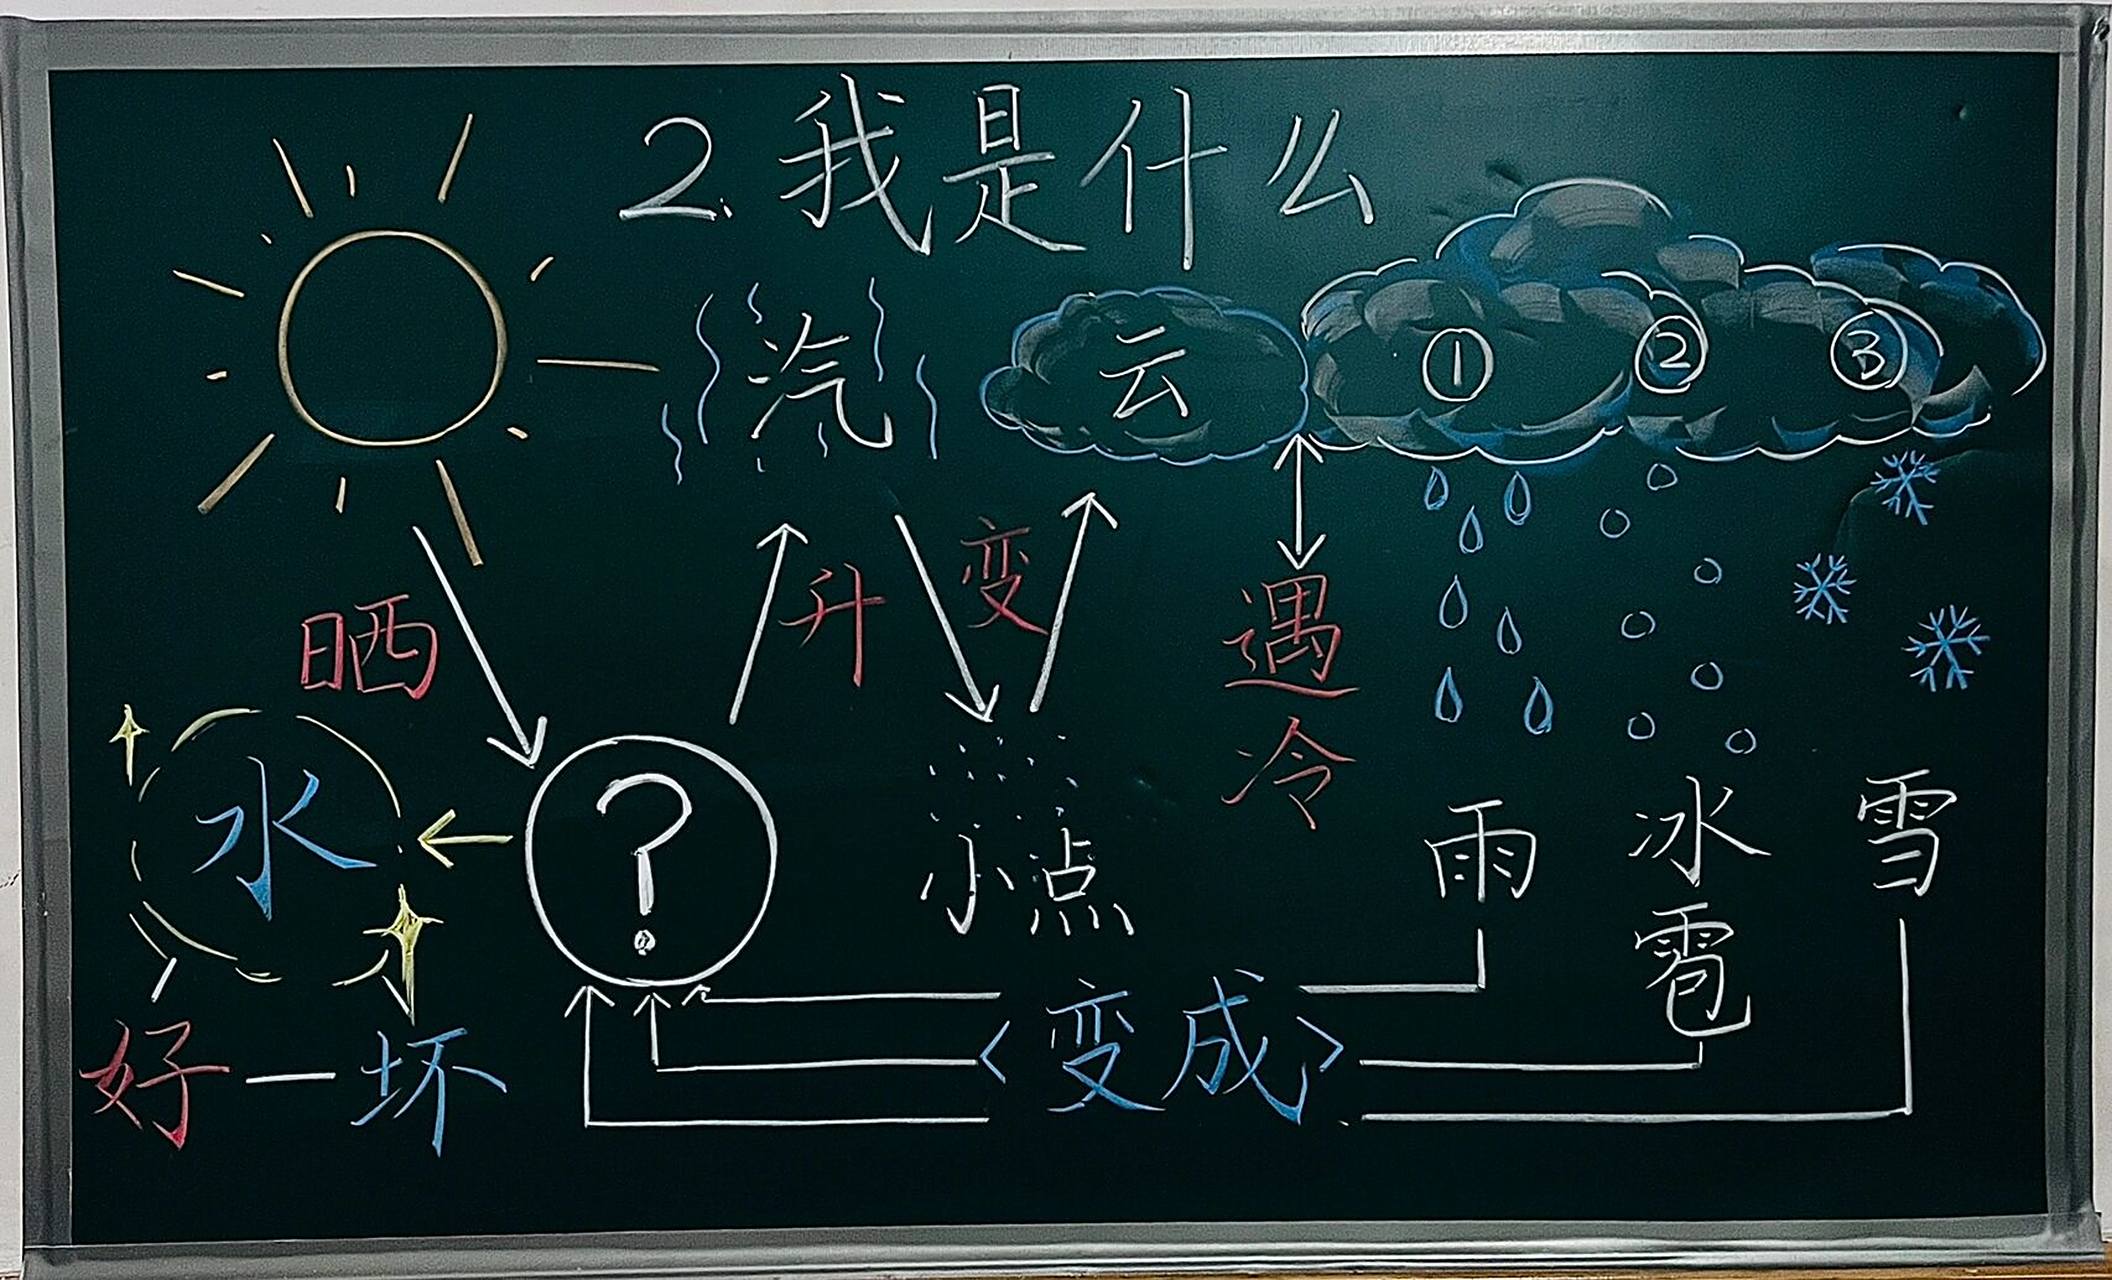 2.我是什么
汽
云
①
②
③
晒
升
变
遇冷
水
?
小点
雨
冰雹
雪
好—坏
<变成>